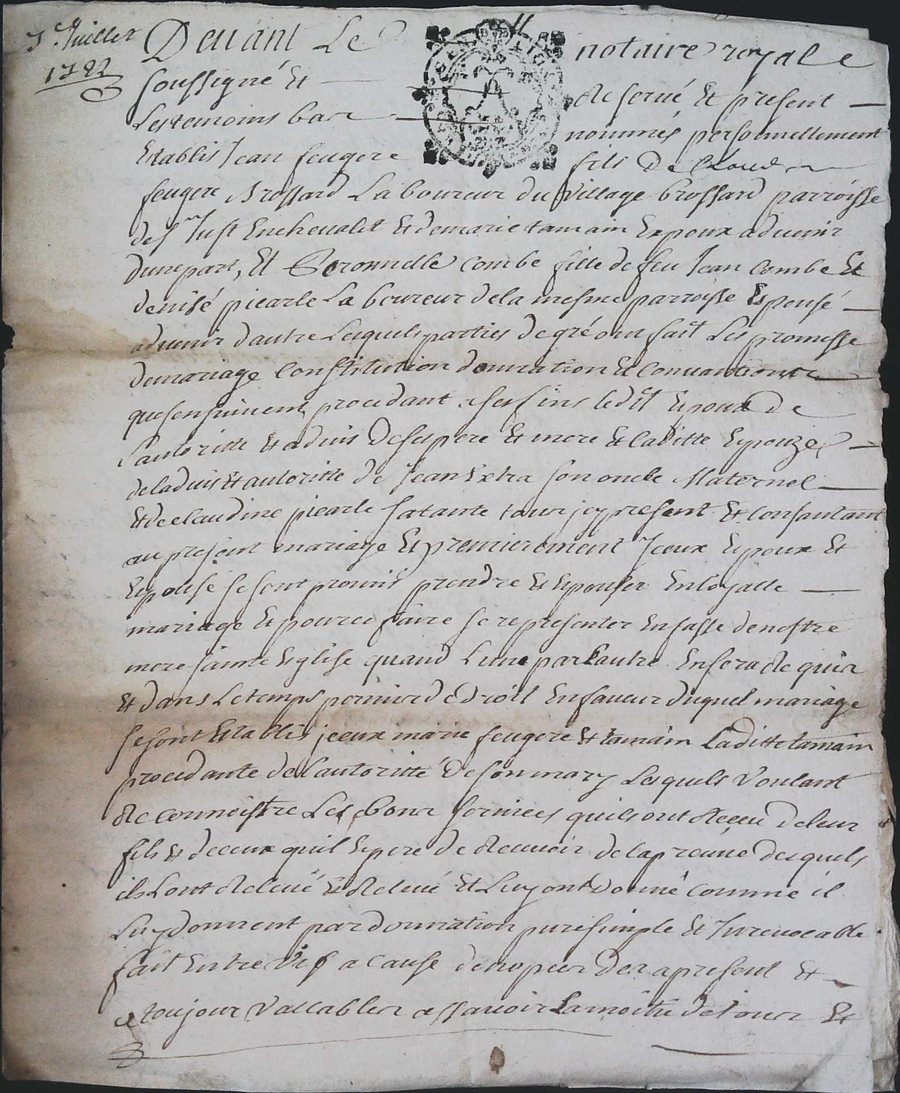 Juillet
Devant Le notaire royal
soussigné Et reservé Et present
Les temoins bas nommés personnellement
Establis Jean feugere fils de Claude
feugere Brossard Laboureur du Village brossard parroisse
de st Just Encheualet Et de marie tamain Expoux aduenir
dune part, Et combe fille de feu Jean combe Et
denise piearle Laboureur de la mesme parroisse Espousé
aduenir dautre Lesquels parties de gré ont fait Les promesse
de mariage Constitution donnation Et Conuantions
que sensuiuent procedant a ses fins ledit Expoux de
Lautoritté Et aduis de ses pere Et mere Et laditte Epouze
de laduis Et autoritté de Jean son oncle Maternel
Et de claudine piearle sa tante tous jcy present Et Consantant
au present mariage Et premierement Jceux Expoux Et
Epousé se sont promis prendre Et Epouser En loyalle
mariage Et pour ce faire se representer En fasse de nostre
mere sainte Eglise quand Lune par Lautre En sera requis
Et dans Le temps permis de droit En faueur duquel mariage
se sont Establis jceux marié feugere Et tamain Laditte tamain
procedante de Lautoritté de son mary Lesquels Voulant
Reconnoistre Les bons seruices quils ont Receu de leur
fils Et de ceux quil Espere de Receuoir de la preuue desquels
ils Lont Releué Et Releue Et Luy ont donné comme il
Luy donnent par donnation pure simple Et Irreuocable
fait Entre Vifs a cause de nopces des a present Et
a toujour Vallables assauoir La moitié de tous Et